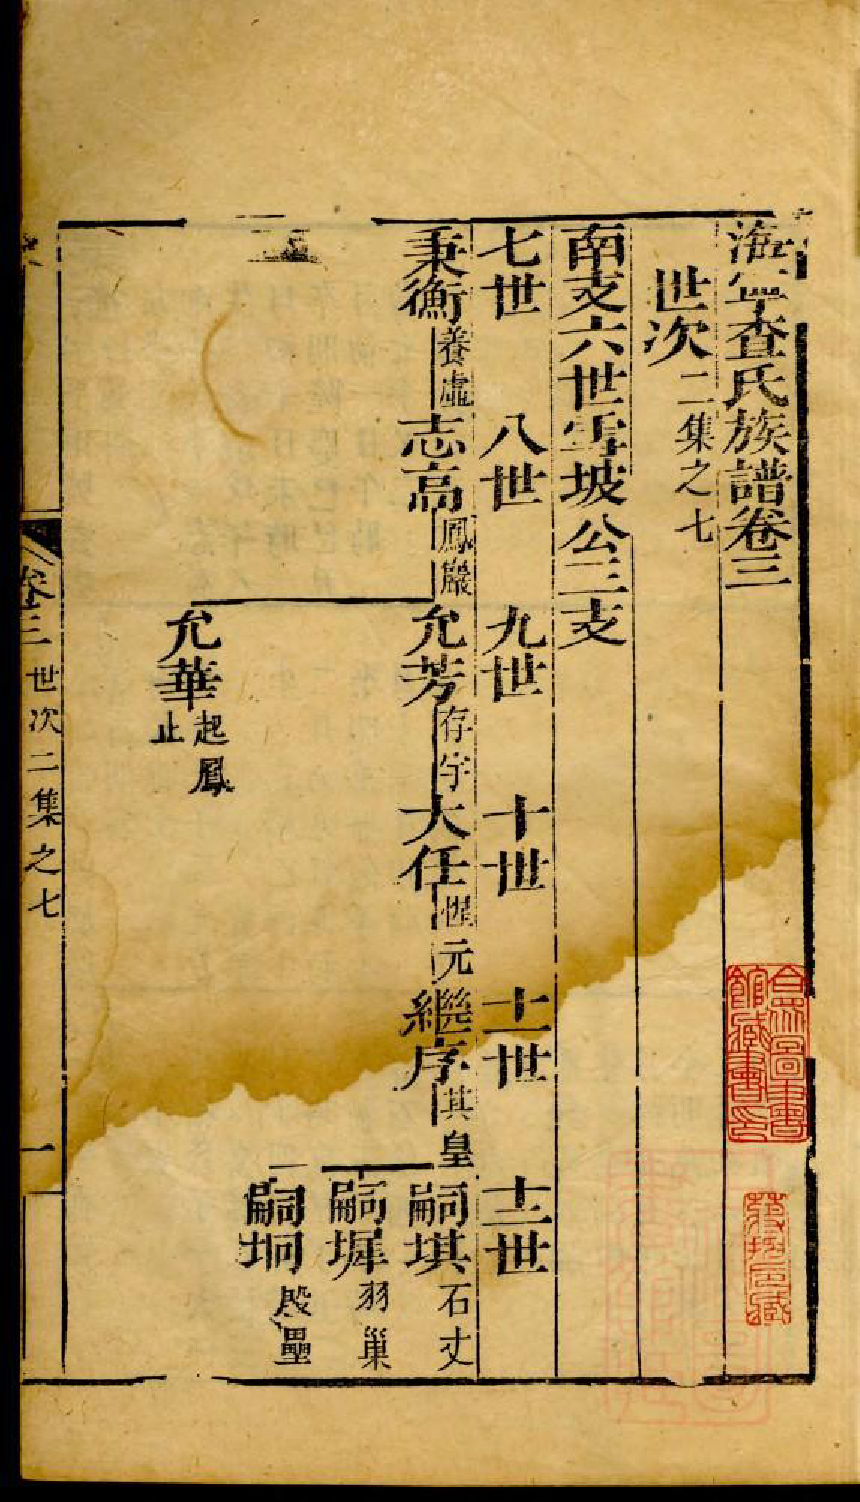 海寧查氏族譜卷三
世次二集之七
南支六世雪坡公三支
七世 八世 九世 十世 十一世 十二世
秉衡養虛 志高鳳巖 允芳存宇 大任惺元 繼序其皇 嗣堪石丈
嗣墀羽巢
允華起鳳止 嗣坰殷壘
卷三 世次二集之七 一